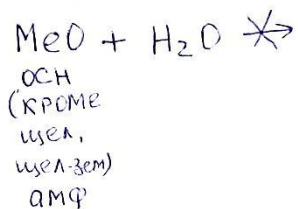 MeO + H₂O ↛
осн
(кроме
щел,
щел-зем)
амф